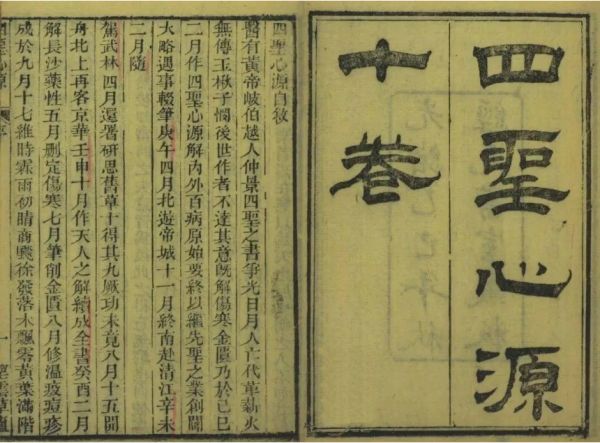 四聖心源
十卷
四聖心源自敘
醫有黃帝岐伯越人仲景四聖之書爭光日月人亡代革薪火
無傳玉楸子憫後世作者不達其意既解傷寒金匱乃於己巳
二月作四聖心源解內外百病原始要終以繼先聖之業創闢
大略遇事輟筆庚午四月北遊帝城十一月終南赴清江辛未
二月隨
駕武林四月還署研思舊草十得其九厥功未竟八月十五開
舟北上再客京華壬申十月作天人之解續成全書癸酉二月
解長沙藥性五月刪定傷寒七月筆削金匱八月修溫疫痘疹
成於九月十七維時霖雨初晴商飆徐發落木飄零黃葉滿階